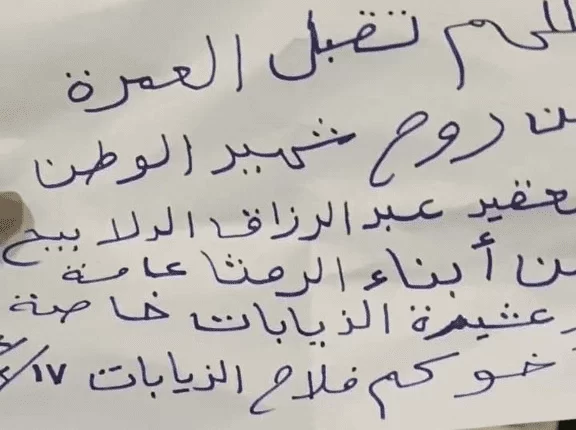 اللهم تقبل العمرة
عن روح شهيد الوطن
العقيد عبدالرزاق الدلابيح
من أبناء الرمثا عامة
وعشيرة الذيابات خاصة
أخوكم فلاح الذيابات ١٧/